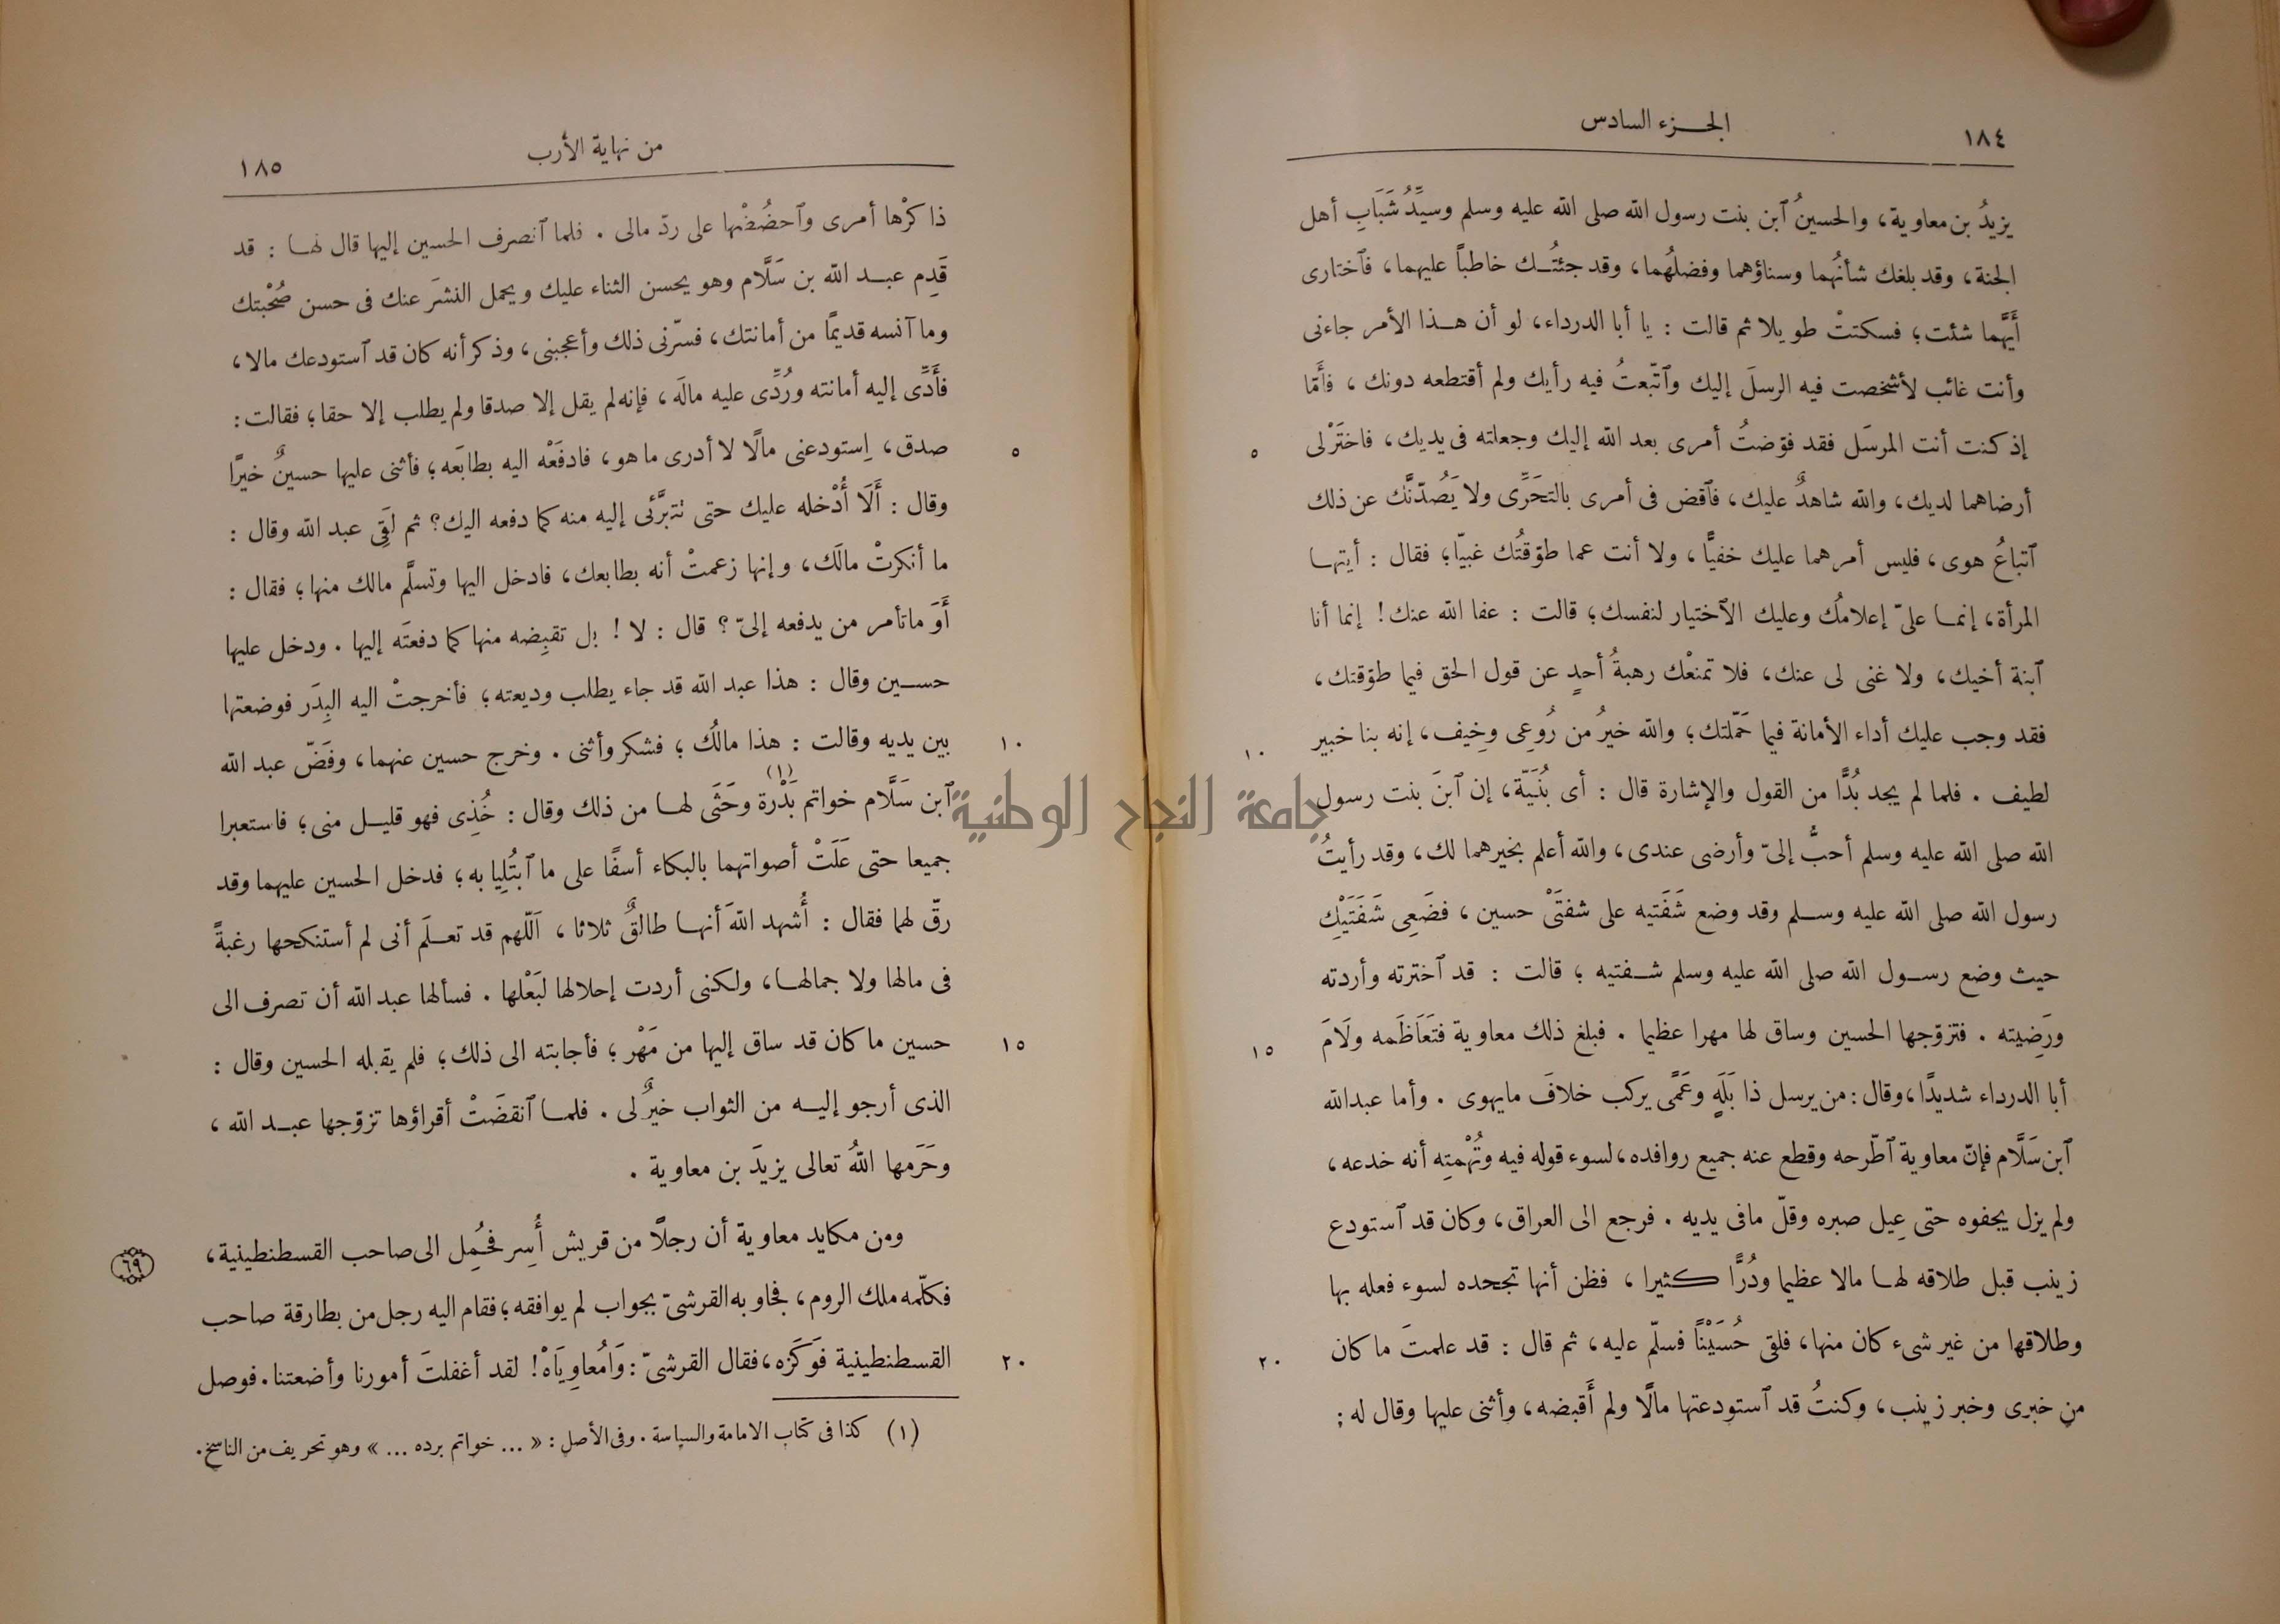 ١٨٤
الجـزء السادس
يزيدُ بن معاوية، والحسينُ ٱبن بنت رسول الله صلى الله عليه وسلم وسيِّدُ شَبَابِ أهل
الجنة، وقد بلغك شأنُهما وسناؤهما وفضلُهما، وقد جئتُـك خاطباً عليهما، فٱختارى
أيَّهما شئت؛ فسكتتْ طويلا ثم قالت : يا أبا الدرداء، لو أن هـذا الأمر جاءنى
وأنت غائب لأشخصت فيه الرسلَ إليك وٱتّبعتُ فيه رأيك ولم أقتطعه دونك ، فأمّا
إذ كنت أنت المرسَل فقد فوّضتُ أمرى بعد الله إليك وجعلته فى يديك، فاخترْ لى
٥
أرضاهما لديك، والله شاهدٌ عليك، فٱقض فى أمرى بالتحَرِّى ولا يَصُدّنَّك عن ذلك
ٱتباعُ هوى، فليس أمرهما عليك خفيًّا، ولا أنت عما طوّقتُك غبيّا؛ فقال : أيتهـا
المرأة، إنمـا علىّ إعلامُك وعليك الٱختيار لنفسك؛ قالت : عفا الله عنك! إنما أنا
ٱبنة أخيك، ولا غنى لى عنك، فلا تمنعْك رهبةُ أحدٍ عن قول الحق فيما طوّقتك،
فقد وجب عليك أداء الأمانة فيما حَمّلتك؛ والله خيرُ من رُوعِى وخِيف، إنه بنا خبير
١٠
لطيف . فلما لم يجد بُدًّا من القول والإشارة قال : أى بُنَيّة، إن ٱبنَ بنت رسول
الله صلى الله عليه وسلم أحبُّ إلىّ وأرضى عندى، والله أعلم بخيرهما لك، وقد رأيتُ
رسول الله صلى الله عليه وسـلم وقد وضع شَفَتيه على شفتَىْ حسين ، فضَعِى شَفَتَيْكِ
حيث وضع رسـول الله صلى الله عليه وسلم شـفتيه ؛ قالت : قد ٱخترته وأردته
ورَضِيته . فتزوّجها الحسين وساق لها مهرا عظيما . فبلغ ذلك معاوية فتَعَاظَمه ولَامَ
١٥
أبا الدرداء شديدًا، وقال : من يرسل ذا بَلَهٍ وعَمًى يركب خلافَ مايهوى . وأما عبدالله
ٱبن سَلَّام فإنّ معاوية ٱطّرحه وقطع عنه جميع روافده، لسوء قوله فيه وتُهْمَتِه أنه خدعه،
ولم يزل يجفوه حتى عِيل صبره وقلّ مافى يديه . فرجع الى العراق، وكان قد ٱستودع
زينب قبل طلاقه لهـا مالا عظيما ودُرًّا كثيرا ، فظن أنها تجحده لسوء فعله بها
وطلاقها من غير شىء كان منها، فلقى حُسَيْنًا فسلّم عليه، ثم قال : قد علمتَ ما كان
٢٠
من خبرى وخبر زينب، وكنتُ قد ٱستودعتها مالًا ولم أَقبضه، وأثنى عليها وقال له :
من نهاية الأرب
١٨٥
ذاكرْها أمرى وٱحضُضْها على ردّ مالى . فلما ٱنصرف الحسين إليها قال لهـا : قد
قَدِم عبـد الله بن سَلَّام وهو يحسن الثناء عليك ويحمل النشرَ عنك فى حسن صُحْبتك
وما آنسه قديمًا من أمانتك، فسرّنى ذلك وأعجبنى، وذكر أنه كان قد ٱستودعك مالا،
فأَدِّى إليه أمانته ورُدِّى عليه مالَه، فإنه لم يقل إلا صدقا ولم يطلب إلا حقا؛ فقالت :
صدق، اِستودعنى مالًا لا أدرى ما هو، فادفَعْه اليه بطابَعه؛ فأثنى عليها حسينٌ خيرًا
٥
وقال : أَلَا أُدْخله عليك حتى تتبرَّئى إليه منه كما دفعه اليك؟ ثم لَقِى عبد الله وقال :
ما أنكرتْ مالَك، وإنها زعمتْ أنه بطابعك، فادخل اليها وتسلَّم مالك منها؛ فقال :
أَوَ ماتأمر من يدفعه إلىّ ؟ قال : لا ! بل تقبِضه منها كما دفعتَه إليها . ودخل عليها
حسـين وقال : هذا عبد الله قد جاء يطلب وديعته؛ فأخرجتْ اليه البِدَر فوضعتها
بين يديه وقالت : هذا مالُك ؛ فشكر وأثنى . وخرج حسين عنهما، وفَضّ عبد الله
١٠
ٱبن سَلَّام خواتم بَدْرة (١) وحَثَى لهـا من ذلك وقال : خُذِى فهو قليـل منى؛ فاستعبرا
جميعا حتى عَلَتْ أصواتهما بالبكاء أسفًا على ما ٱبتُلِيا به؛ فدخل الحسين عليهما وقد
رقّ لهما فقال : أُشهد اللهَ أنهـا طالقٌ ثلاثا ، اَللّهم قد تعـلَم أنى لم أستنكحها رغبةً
فى مالها ولا جمالهـا، ولكنى أردت إحلالها لبَعْلها . فسألها عبد الله أن تصرف الى
حسين ما كان قد ساق إليها من مَهْر ؛ فأجابته الى ذلك؛ فلم يقبله الحسين وقال :
١٥
الذى أرجو إليـه من الثواب خيرٌ لى . فلمـا ٱنقضَتْ أقراؤها تزوّجها عبـد الله ،
وحَرَمها اللهُ تعالى يزيدَ بن معاوية .
ومن مكايد معاوية أن رجلًا من قريش أُسِر فحُمِل الى صاحب القسطنطينية،
٦٩
فكلّمه ملك الروم، فجاوبه القرشىّ بجواب لم يوافقه؛ فقام اليه رجل من بطارقة صاحب
القسطنطينية فَوَكَزه، فقال القرشىّ : وَامُعاوِيَاهْ! لقد أغفلتَ أمورنا وأضعتنا. فوصل
٢٠
(١) كذا فى كتاب الامامة والسياسة . وفى الأصل : « ... خواتم برده ... » وهو تحريف من الناسخ .
جامعة النجاح الوطنية